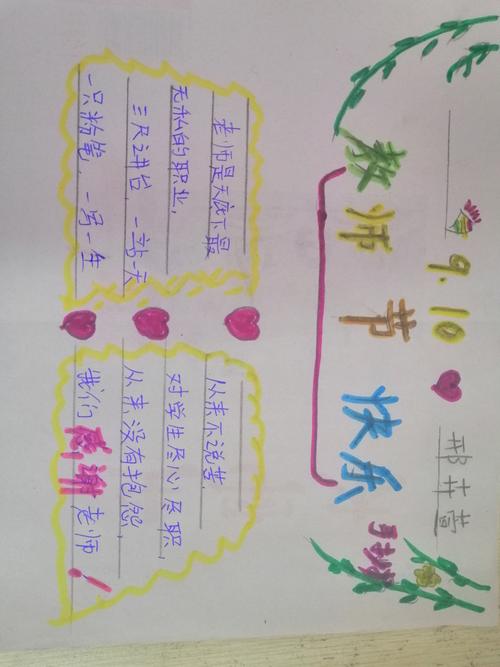 9.10
教师节快乐
手抄报
老师是天底下最
无私的职业,
三尺讲台,一站一天
一只粉笔,一写一生
从来不说苦,
对学生尽心尽职,
从来没有抱怨,
我们感谢老师!